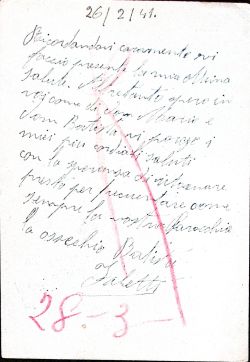 26/2/41.
Ricordandovi caramente vi
faccio presente la mia
salute. Altretanto spero in
voi come di Don Mario e
Don Batista vi porgo i
miei più cordiali saluti
con la speranza di ritornare
presto per frequentare come
sempre la vostra Parocchia
la
Batista
Saletti
28-3-